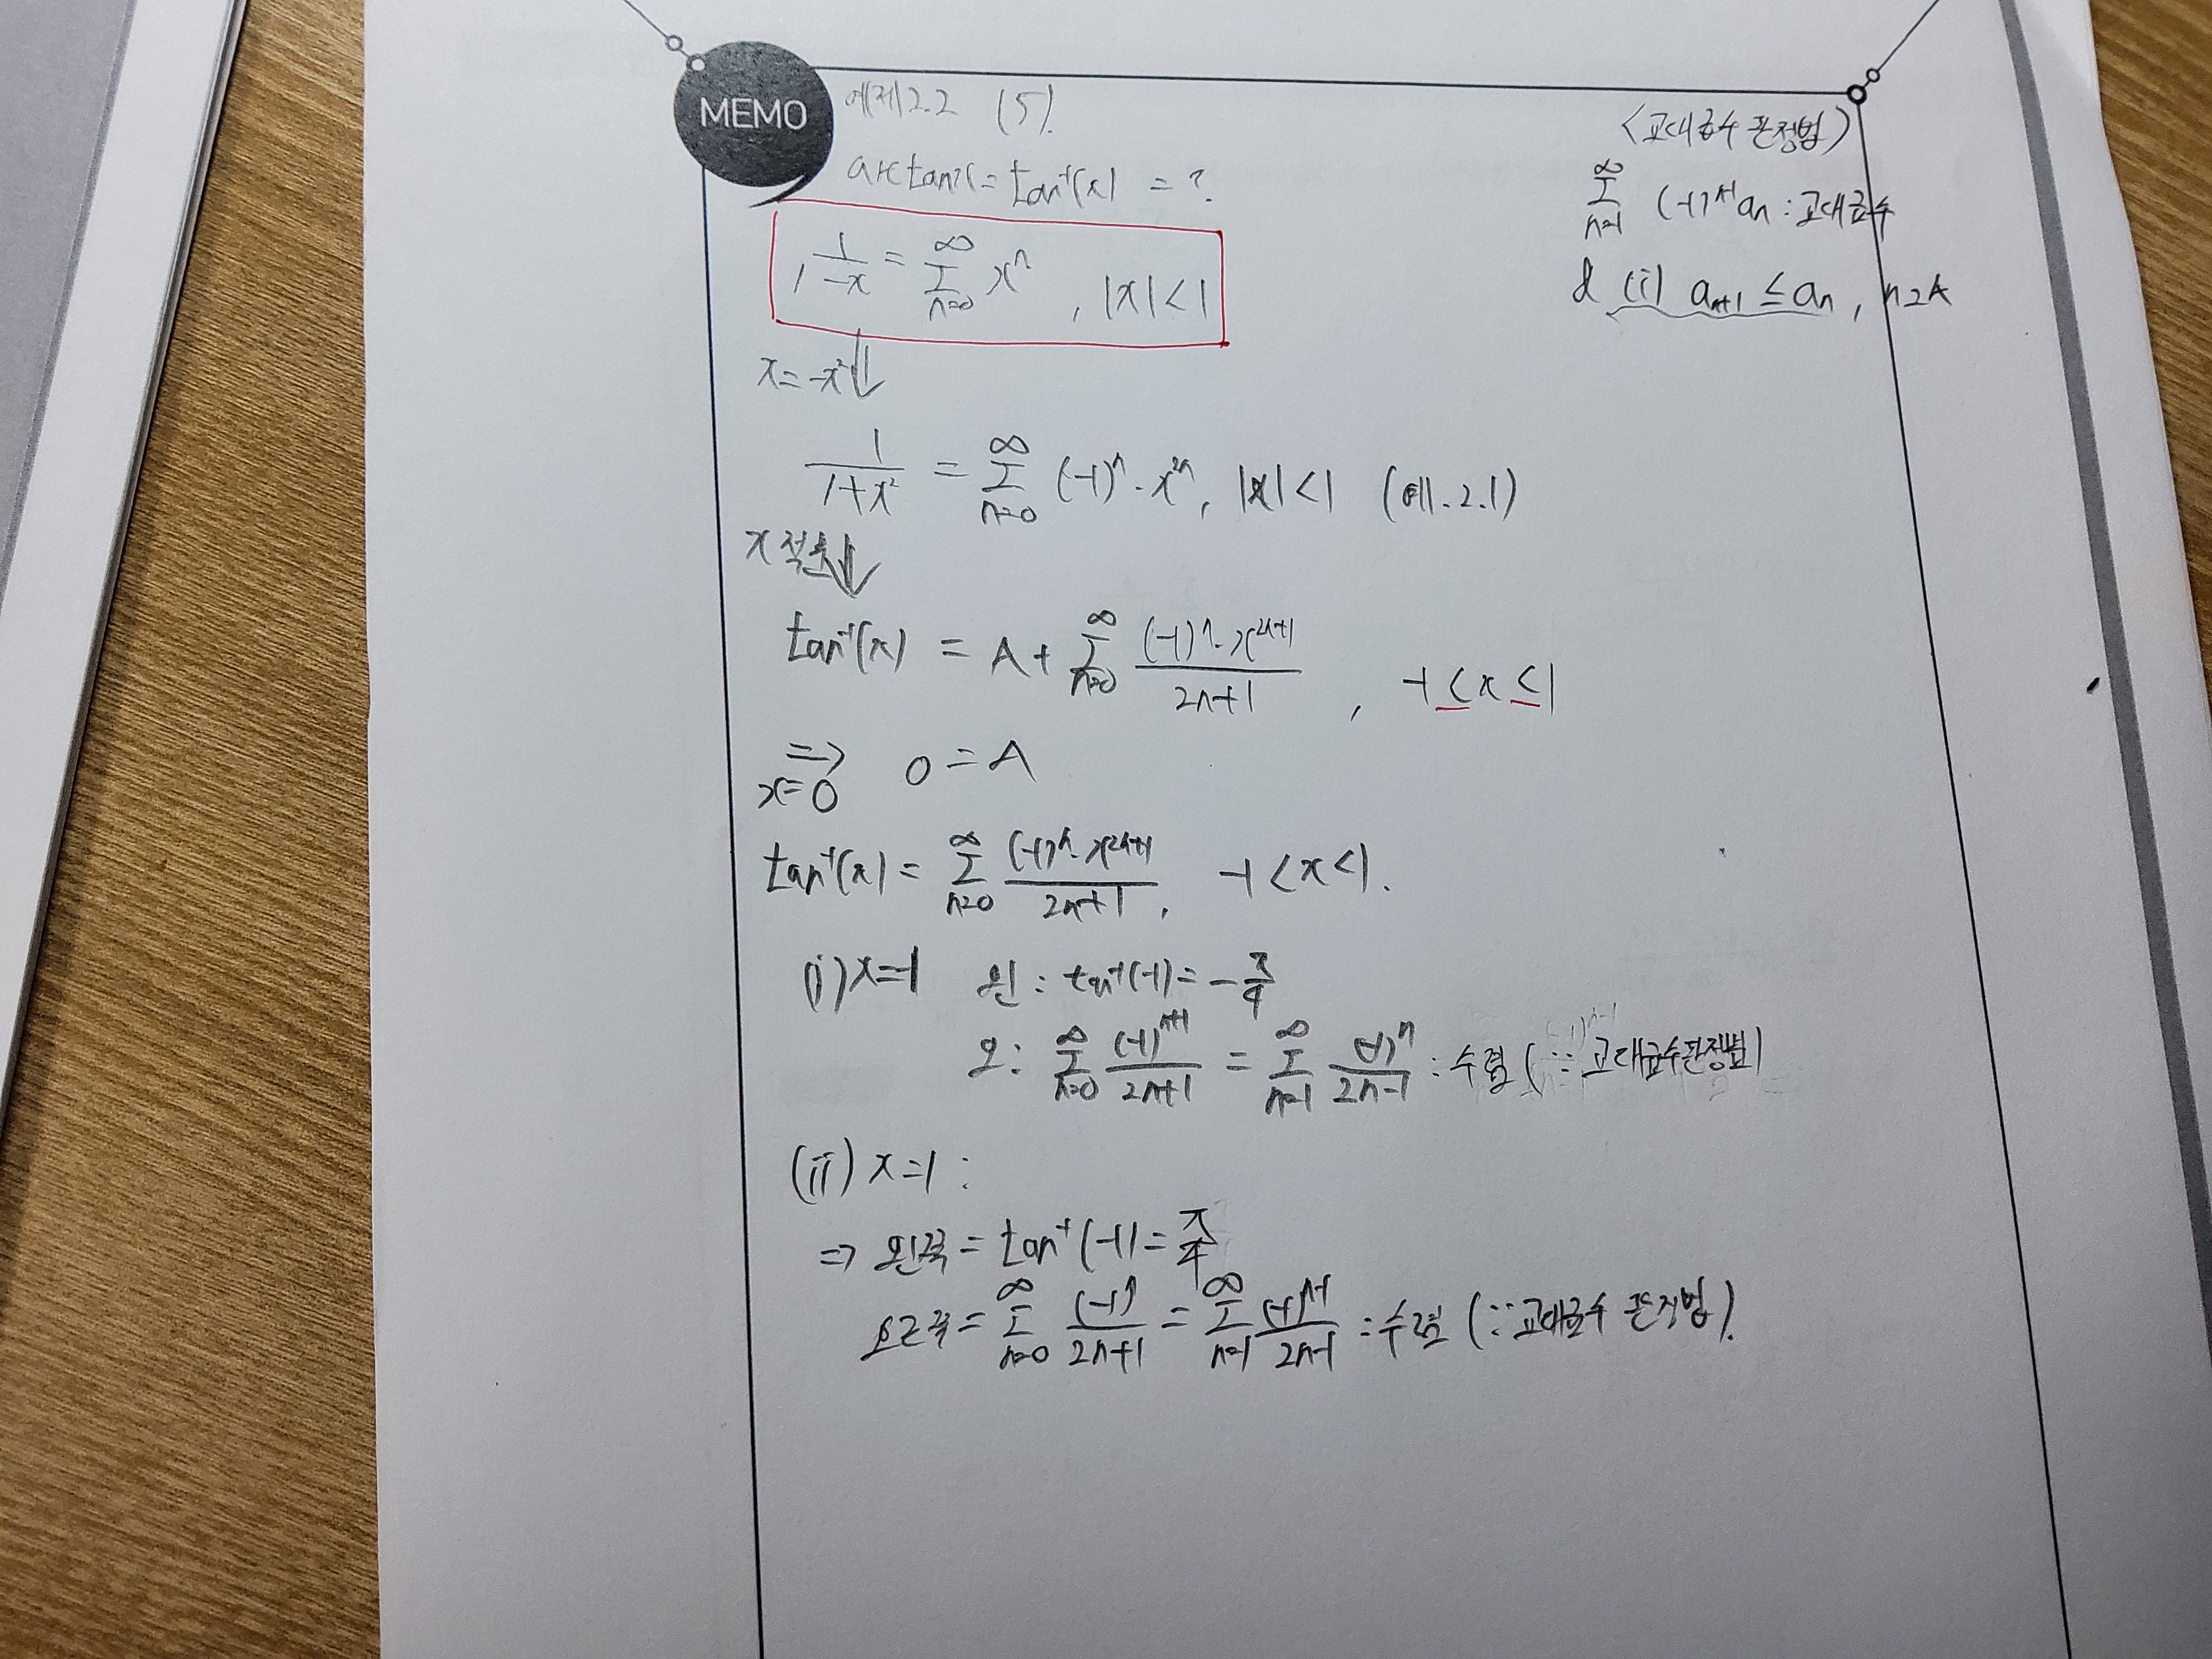 MEMO
예제 2.2 (5).
arctanx = tan⁻¹(x) = ?
1/(1-x) = ∑_{n=0}^{∞} xⁿ , |x|<1
x = -x² ⇓
1/(1+x²) = ∑_{n=0}^{∞} (-1)ⁿ · x²ⁿ, |x|<1 (예.2.1)
x 적분 ⇓
tan⁻¹(x) = A + ∑_{n=0}^{∞} (-1)ⁿ · x²ⁿ⁺¹/(2n+1) , -1 ≤ x ≤ 1
⇒ 0 = A
x=0
tan⁻¹(x) = ∑_{n=0}^{∞} (-1)ⁿ · x²ⁿ⁺¹/(2n+1) , -1 < x < 1.
(i) x=-1 왼 : tan⁻¹(-1) = -π/4
오 : ∑_{n=0}^{∞} (-1)ⁿ⁺¹/(2n+1) = ∑_{n=1}^{∞} (-1)ⁿ/(2n-1) : 수렴 (∵ 교대급수판정법)
(ii) x=1 :
⇒ 왼쪽 = tan⁻¹(-1) = π/4
오른쪽 = ∑_{n=0}^{∞} (-1)ⁿ/(2n+1) = ∑_{n=1}^{∞} (-1)ⁿ⁻¹/(2n-1) : 수렴 (∵ 교대급수 판정법).
<교대급수 판정법>
∑_{n=1}^{∞} (-1)ⁿ⁺¹ aₙ : 교대급수
(i) aₙ₊₁ ≤ aₙ ,